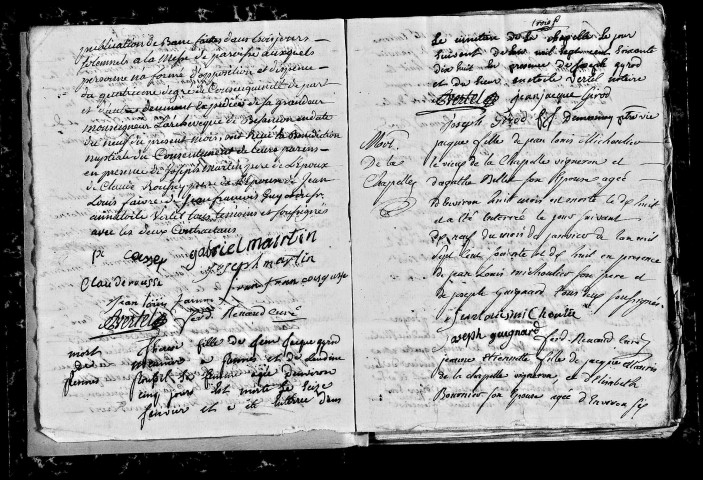 publication de Banc faites dans trois jours
solemnels a la Messe de paroisse auxquels
personne na formé d'opposition et dispense
du quatrieme degré de Consanguinité de part
et d'autre duement expediée de sa grandeur
monseigneur L'archeveque de Besançon en date
du neuf du present mois, ont Reçu la Benediction
nuptiale du Consentement de leurs parens
en presence de Joseph Martin pere de L'epoux
de Claude Roussey pere de L'epouse de Jean
Louis faivre de Jean francois Guy et de fr
anatoile Vertel tous temoins et soussignés
avec les deux Contractans
gabriel maintin
joseph martin
Claude rousse
jean louis
A Vertel ferd Renaud Curé
mort
de
fille de feu jaque gyrod
a et de Claudine
son Epouse agée d'environ
cinq jours est morte le seize
fevrier et a été enterrée dans
trois
Le cimetiere de la chapelle le jour
suivant de l'an mil sept cent soixante
dix huit en presence de joseph gyrod
et de Sieur anatoile Vertel notaire
A Vertel jeanjacque Girod
Joseph Girod
Mort
De la
Chapelle
jacques fille de jean louis Michoulier
le vieux de la Chapelle vigneron et
d'agathe Bellet son Epouse agée
d'Environ huit mois est morte le dix huit
et a été Enterrée le jour suivant
dix neuf du mois de janvier de l'an mil
sept Cent soixante et dix huit en presence
de jean Louis michoulier son pere et
de joseph Guignard tous deux soussignés
joseph guignard ferd Renaud Curé
jeanne Etiennette fille de jacques
de la chapelle vigneron et d'Elisabeth
son Epouse agée d'Environ six